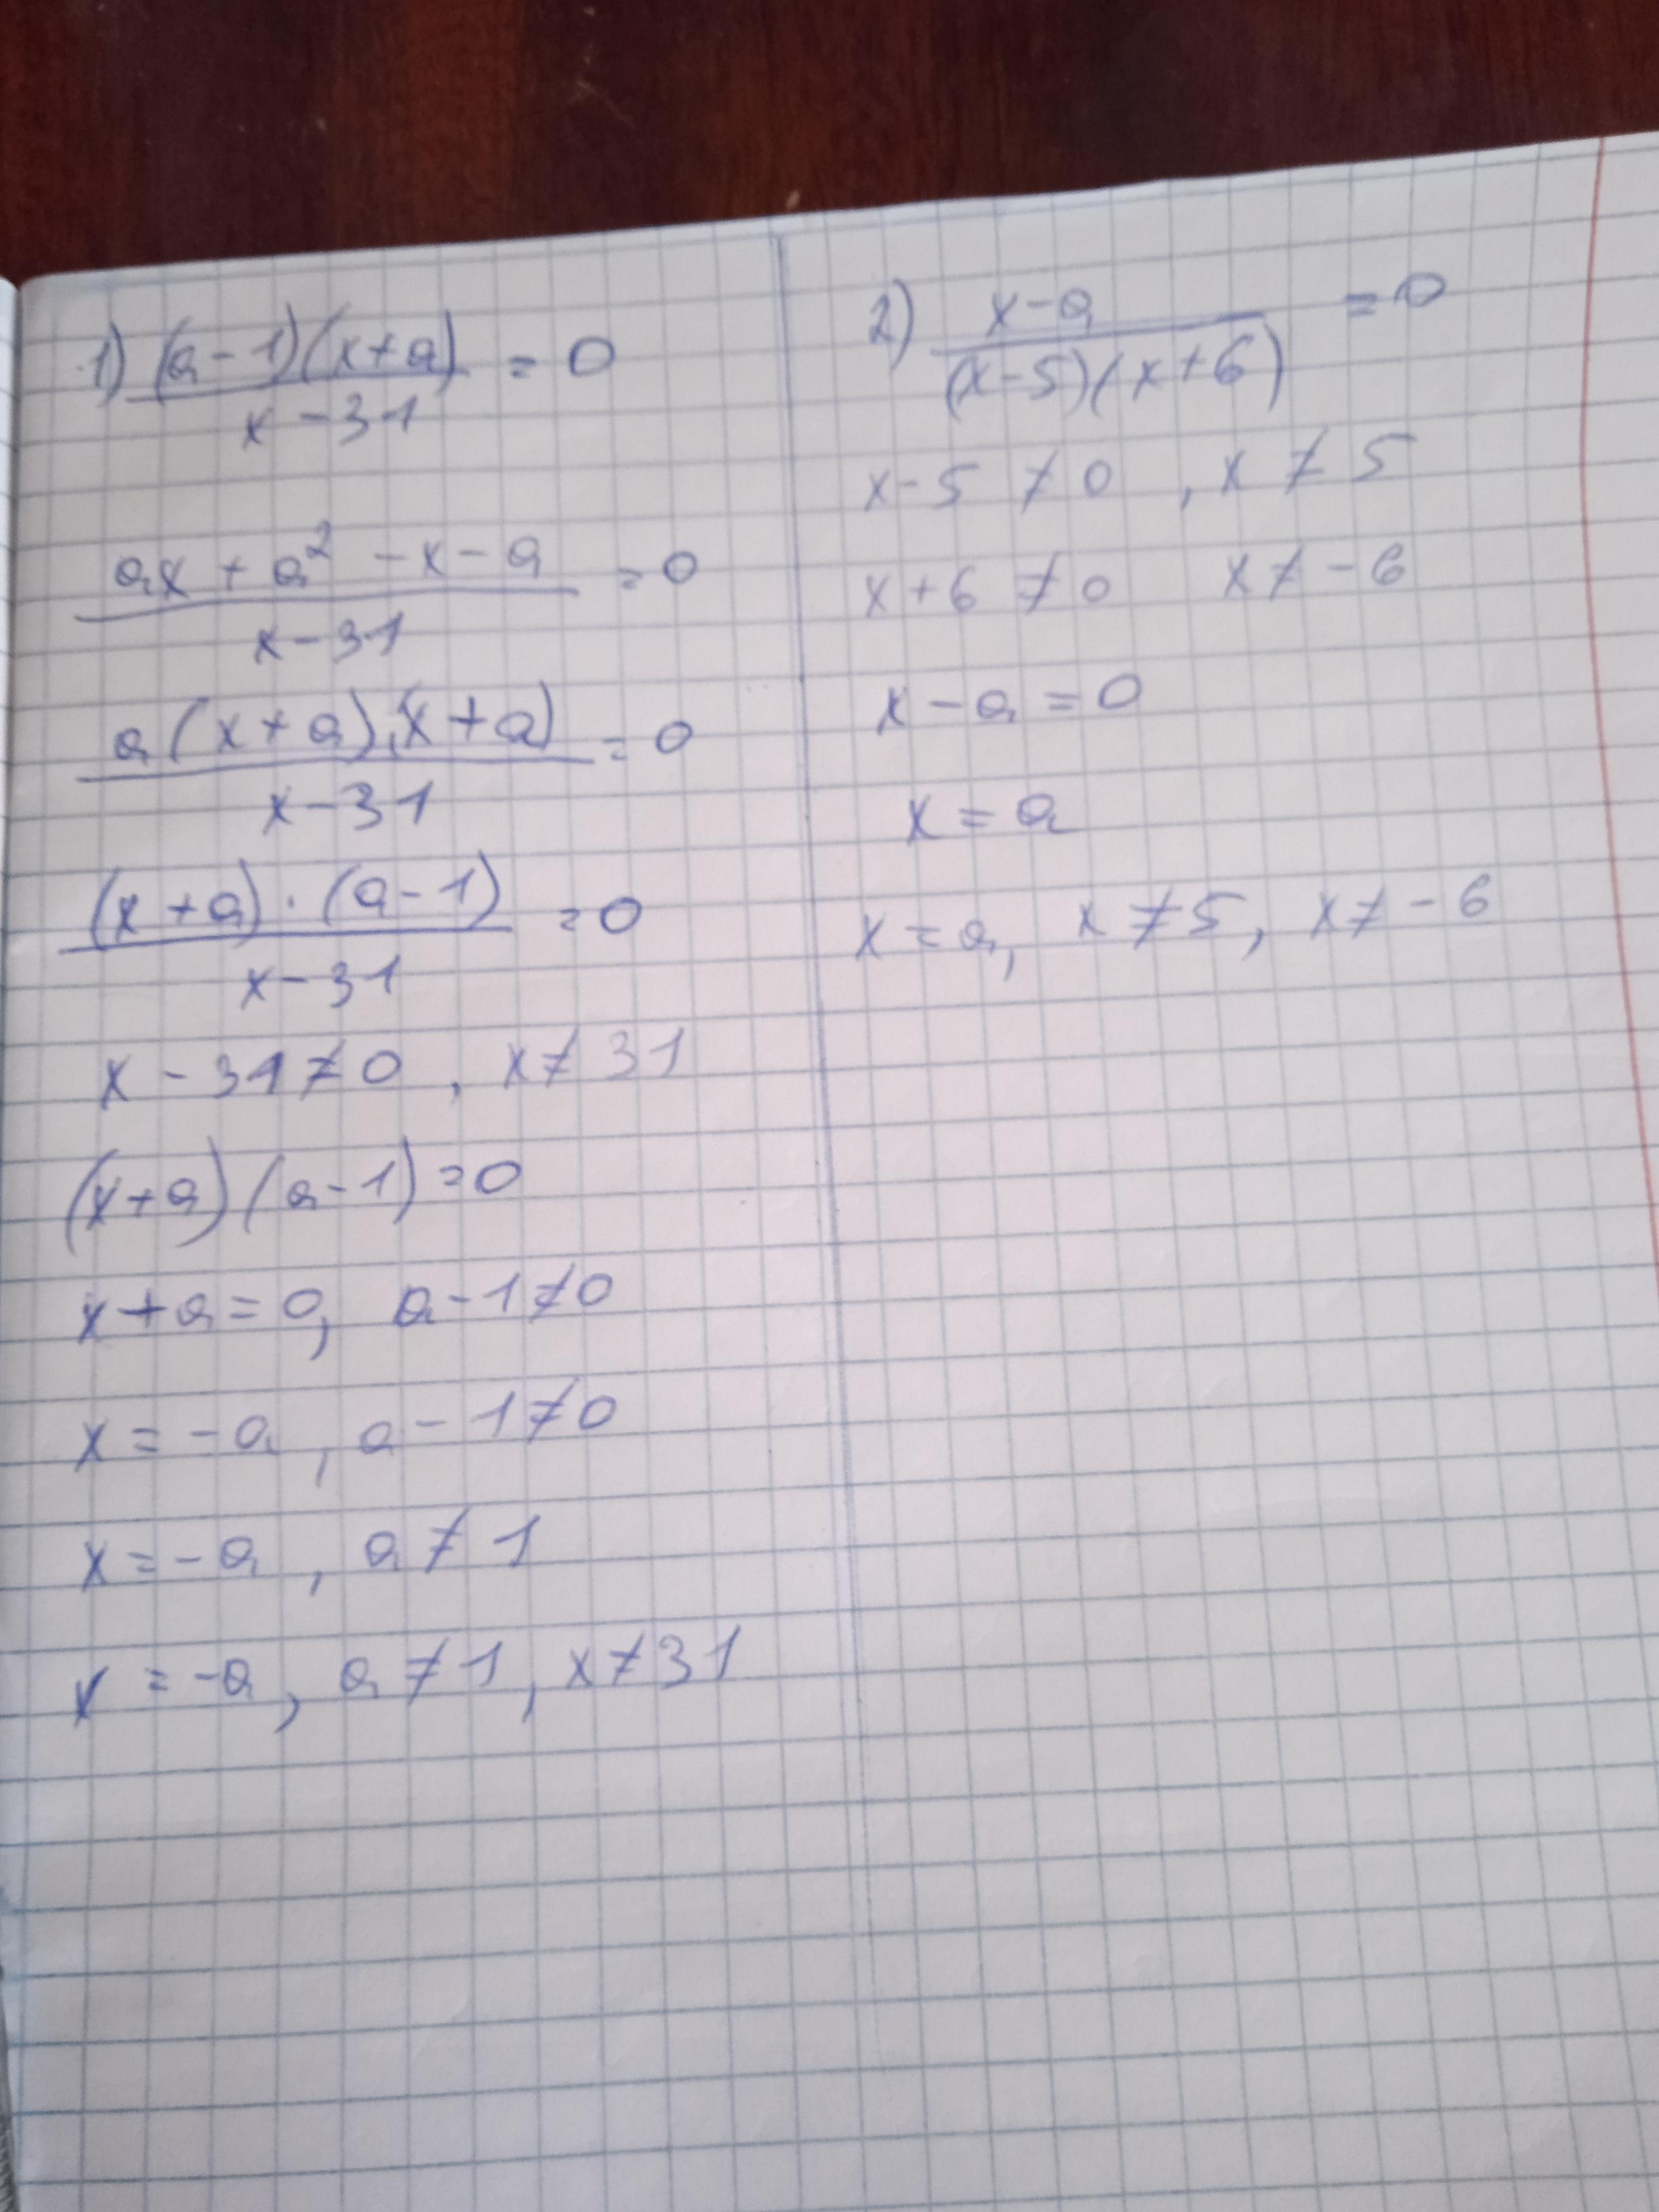 1) (a-1)(x+a) / x-31 = 0
ax + a² - x - a / x-31 = 0
a(x+a),(x+a) / x-31 = 0
(x+a)·(a-1) / x-31 = 0
x - 31 ≠ 0 , x ≠ 31
(x+a)(a-1)=0
x+a=0, a-1≠0
x = -a , a - 1 ≠ 0
x = -a , a ≠ 1
x = -a, a ≠ 1, x ≠ 31
2) x-a / (x-5)(x+6) = 0
x-5 ≠ 0 , x ≠ 5
x+6 ≠ 0 x ≠ -6
x - a = 0
x = a
x = a, x ≠ 5, x ≠ -6